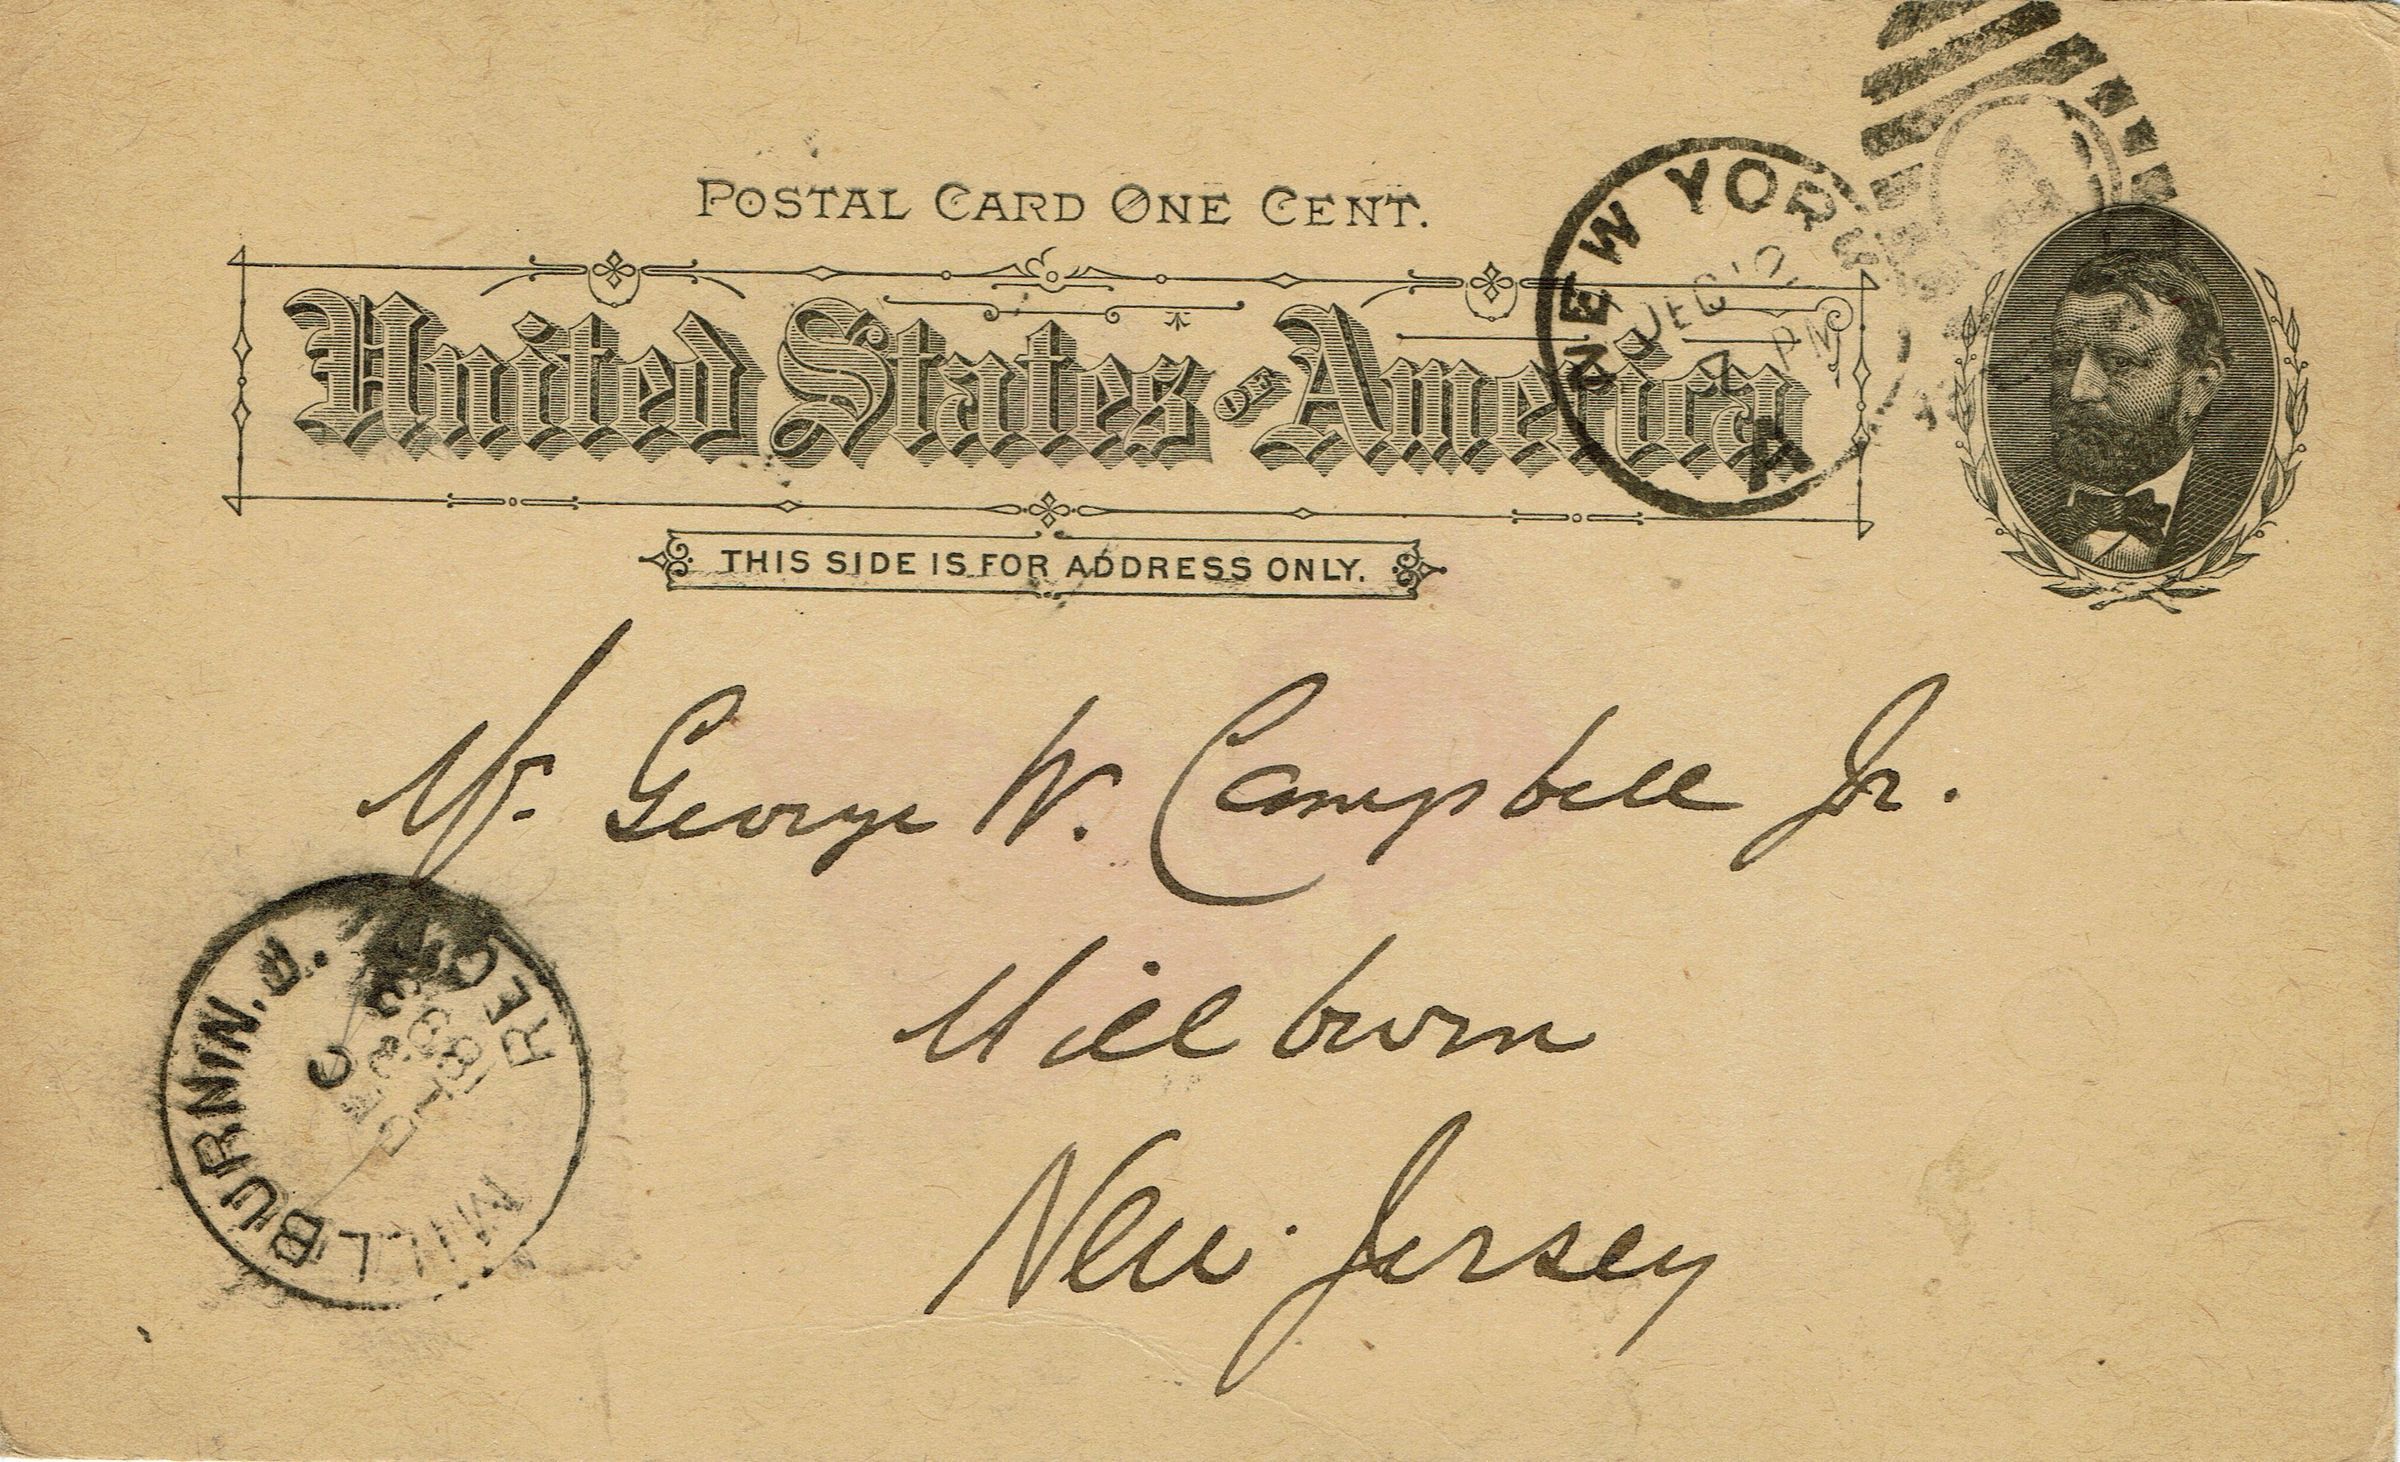 POSTAL CARD ONE CENT.
United States OF America
THIS SIDE IS FOR ADDRESS ONLY.
NEW YORK
DEC 12
PM
Mr. George W. Campbell Jr.
Millburn
New Jersey
MILLBURN N.J.
REC'D